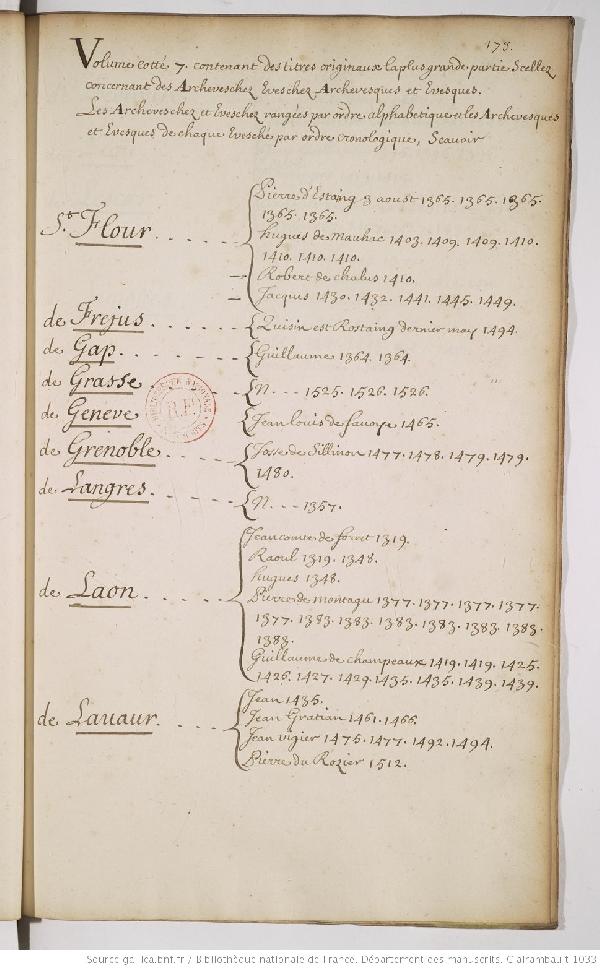 173.
Volume cotté 7. contenant des titres originaux la plus grande partie Scellez
concernant des Archeveschez Eveschez Archevesques et Evesques.
Les Archeveschez et Eveschez rangées par ordre alphabetique et les Archevesques
et Evesques de chaque Evesché par ordre cronologique, Scavoir
St. Flour . . . .
Pierre d'Estaing 3 aoust 1365. 1365. 1365.
1365. 1365.
Hugues de Mauhac 1403. 1409. 1409. 1410.
1410. 1410. 1410.
Robert de chalus 1410.
Jacques 1430. 1432. 1441. 1445. 1449.
de Frejus . . . . .
est Rostaing dernier may 1494.
de Gap . . . . .
Guillaume 1364. 1364.
de Grasse . . .
N. . . . 1525. 1526. 1526.
de Geneve
Jean louis de Savoye 1465.
de Grenoble . . . .
Josse de Sillinon 1477. 1478. 1479. 1479.
1480.
de Langres . . . . .
N. . . . 1357.
de Laon . . . . .
Jean comte de forest 1319.
Raoul 1319. 1348.
hugues 1348.
Pierre de montagu 1377. 1377. 1377. 1377.
1377. 1383. 1383. 1383. 1383. 1383. 1383.
1383.
Guillaume de champeaux 1419. 1419. 1425.
1426. 1427. 1429. 1435. 1435. 1439. 1439.
de Lavaur . . . .
Jean 1435.
Jean Gratian 1461. 1466.
Jean vigier 1475. 1477. 1492. 1494.
Pierre du Rozier 1512.
R.F.
Source gallica.bnf.fr / Bibliothèque nationale de France. Département des manuscrits. Clairambault 1033